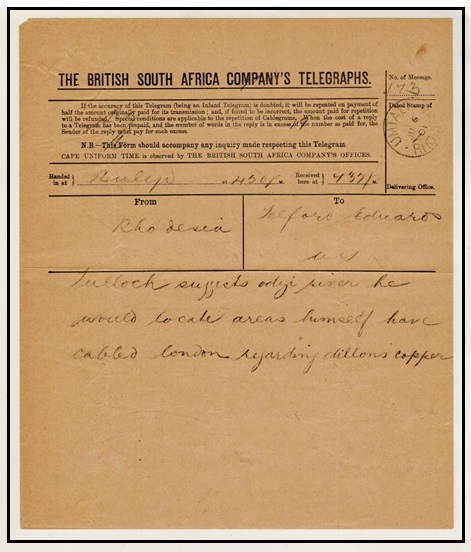 THE BRITISH SOUTH AFRICA COMPANY'S TELEGRAPHS.
No. of Message.
173
If the accuracy of this Telegram (being an Inland Telegram) is doubted, it will be repeated on payment of
half the amount originally paid for its transmission; and, if found to be incorrect, the amount paid for repetition
will be refunded. Special conditions are applicable to the repetition of Cablegrams. When the cost of a reply
to a Telegram has been prepaid, and the number of words in the reply is in excess of the number so paid for, the
Sender of the reply must pay for such excess.
N.B.—This Form should accompany any inquiry made respecting this Telegram.
CAPE UNIFORM TIME is observed by THE BRITISH SOUTH AFRICA COMPANY'S OFFICES.
Dated Stamp of
UMTALI
RHO
Delivering Office.
Handed in at Bulyo at 430 p.m. Received here at 437 p.m.
From
To
Rhodesia
Telford Edwards
Tulloch suggests odzi river he
would locate areas himself have
cabled london regarding dillons copper